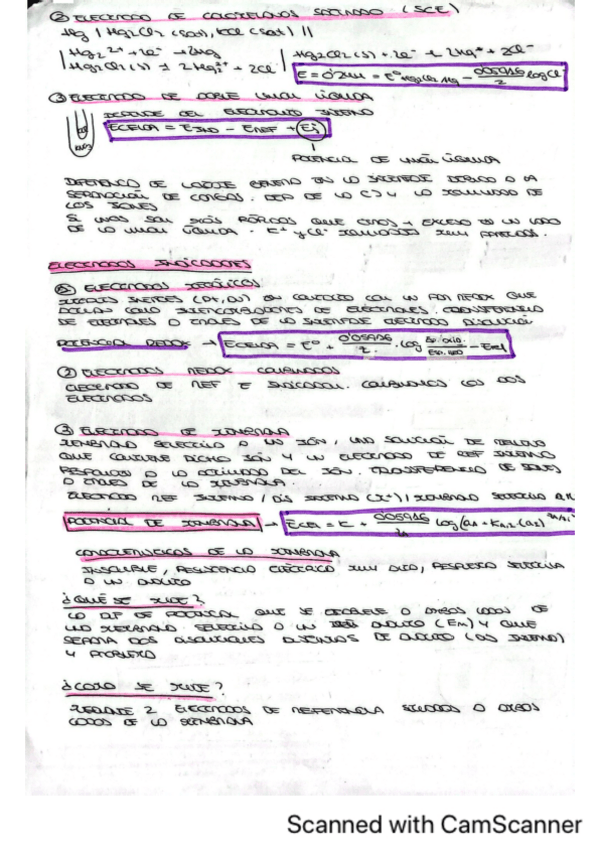 ② ELECTRODO DE CALOMELANOS SATURADO (SCE)
Hg | Hg2Cl2 (sat), KCl (sat) ||
Hg2 2+ + 2e- → 2Hg
Hg2Cl2 (s) + 2e-
+ 2Cl-
E = 0'244 = E° Hg2Cl2/Hg - 0'05916/2 log Cl
③ ELECTRODO DE DOBLE UNIÓN LÍQUIDA
DEPENDE DEL ELECTROLITO INTERNO
ECELDA = EIND - EREF + Ej
POTENCIAL DE UNIÓN LÍQUIDA
DIFERENCIA DE VOLTAJE GENERADO EN LA INTERFASE DEBIDO A LA
SEPARACIÓN DE CARGAS. DEP DE LA [ ] Y LA MOVILIDAD DE
LOS IONES
SI UNOS SON MÁS RÁPIDOS QUE OTROS → EXCESO EN UN LADO
DE LA UNIÓN LÍQUIDA. K+ y Cl- MOVILIDADES MUY PARECIDAS.
ELECTRODOS INDICADORES
① ELECTRODOS METÁLICOS
METALES INERTES (Pt, Au) EN CONTACTO CON UN PAR REDOX QUE
ACTÚAN COMO INTERCAMBIADORES DE ELECTRONES. TRANSFERENCIA
DE ELECTRONES A TRAVÉS DE LA INTERFASE ELECTRODO DISOLUCIÓN
POTENCIAL REDOX → ECELDA = E° + 0'05916/2 · log - Eref
② ELECTRODOS REDOX COMBINADOS
ELECTRODO DE REF E INDICADOR. COMBINADOS LOS DOS
ELECTRODOS
③ ELECTRODO DE MEMBRANA
MEMBRANA SELECTIVA A UN IÓN, UNA SOLUCIÓN DE RELLENO
QUE CONTIENE DICHO IÓN Y UN ELECTRODO DE REF INTERNO
RESPONDE A LA ACTIVIDAD DEL IÓN. TRANSFERENCIA DE IONES
A TRAVÉS DE LA MEMBRANA
ELECTRODO REF INTERNO / DIS INTERNA / MEMBRANA SELECTIVA
POTENCIAL DE MEMBRANA → ECEL = K + 0'05916 log
CARACTERÍSTICAS DE LA MEMBRANA
INSOLUBLE, RESISTENCIA ELÉCTRICA MUY ALTA, RESPUESTA SELECTIVA
A UN ANALITO
¿QUÉ SE MIDE?
LA DIF DE POTENCIAL QUE SE ESTABLECE A AMBOS LADOS DE
UNA MEMBRANA SELECTIVA A UN ANALITO (Em) Y QUE
SEPARA DOS DISOLUCIONES DISTINTAS DE ANALITO (DIS INTERNA)
Y PROBLEMA
¿CÓMO SE MIDE?
MEDIANTE 2 ELECTRODOS DE REFERENCIA SITUADOS A AMBOS
LADOS DE LA MEMBRANA
Scanned with CamScanner